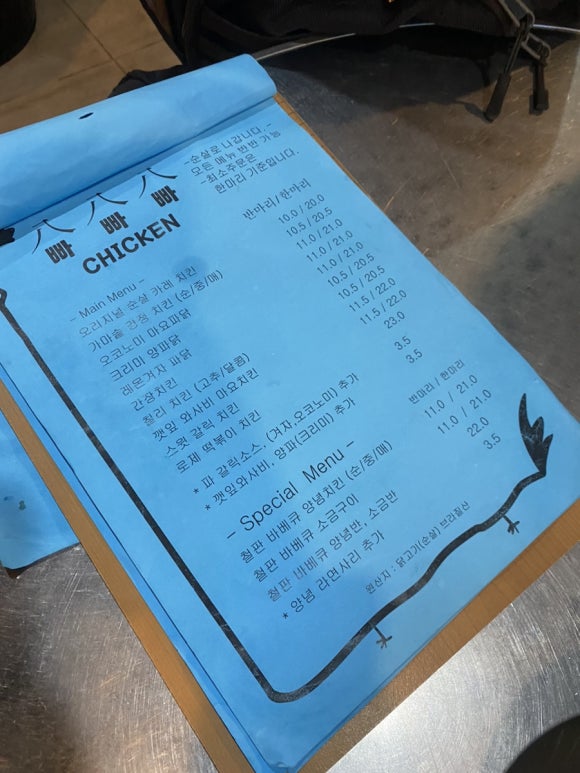 -순살로 나갑니다.-
모든 메뉴 반반 가능
-최소주문은
한마리 기준입니다.
빠빠빠
CHICKEN
반마리/한마리
- Main Menu -
오리지널 순살 카레 치킨 10.0 / 20.0
가마솥 강정 치킨 (순/중/매) 10.5 / 20.5
오코노미 마요파닭 11.0 / 21.0
크리미 양파닭 11.0 / 21.0
레몬겨자 파닭 11.0 / 21.0
간장치킨 10.5 / 20.5
칠리 치킨 (고추/달콤) 10.5 / 20.5
깻잎 와사비 마요치킨 11.5 / 22.0
스윗 갈릭 치킨 11.5 / 22.0
로제 떡볶이 치킨 23.0
* 파 갈릭소스, (겨자,오코노미) 추가 3.5
* 깻잎와사비, 양파(크리미) 추가 3.5
- Special Menu - 반마리 / 한마리
철판 바베큐 양념치킨 (순/중/매) 11.0 / 21.0
철판 바베큐 소금구이 11.0 / 21.0
철판 바베큐 양념반, 소금반 22.0
* 양념 라면사리 추가 3.5
원산지 : 닭고기(순살) 브라질산